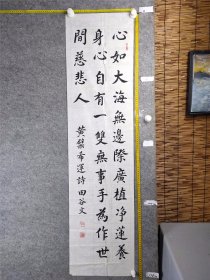 心如大海無邊際廣植净蓮養
身心自有一雙無事手為作世
間慈悲人
黄檗希運詩田谷文